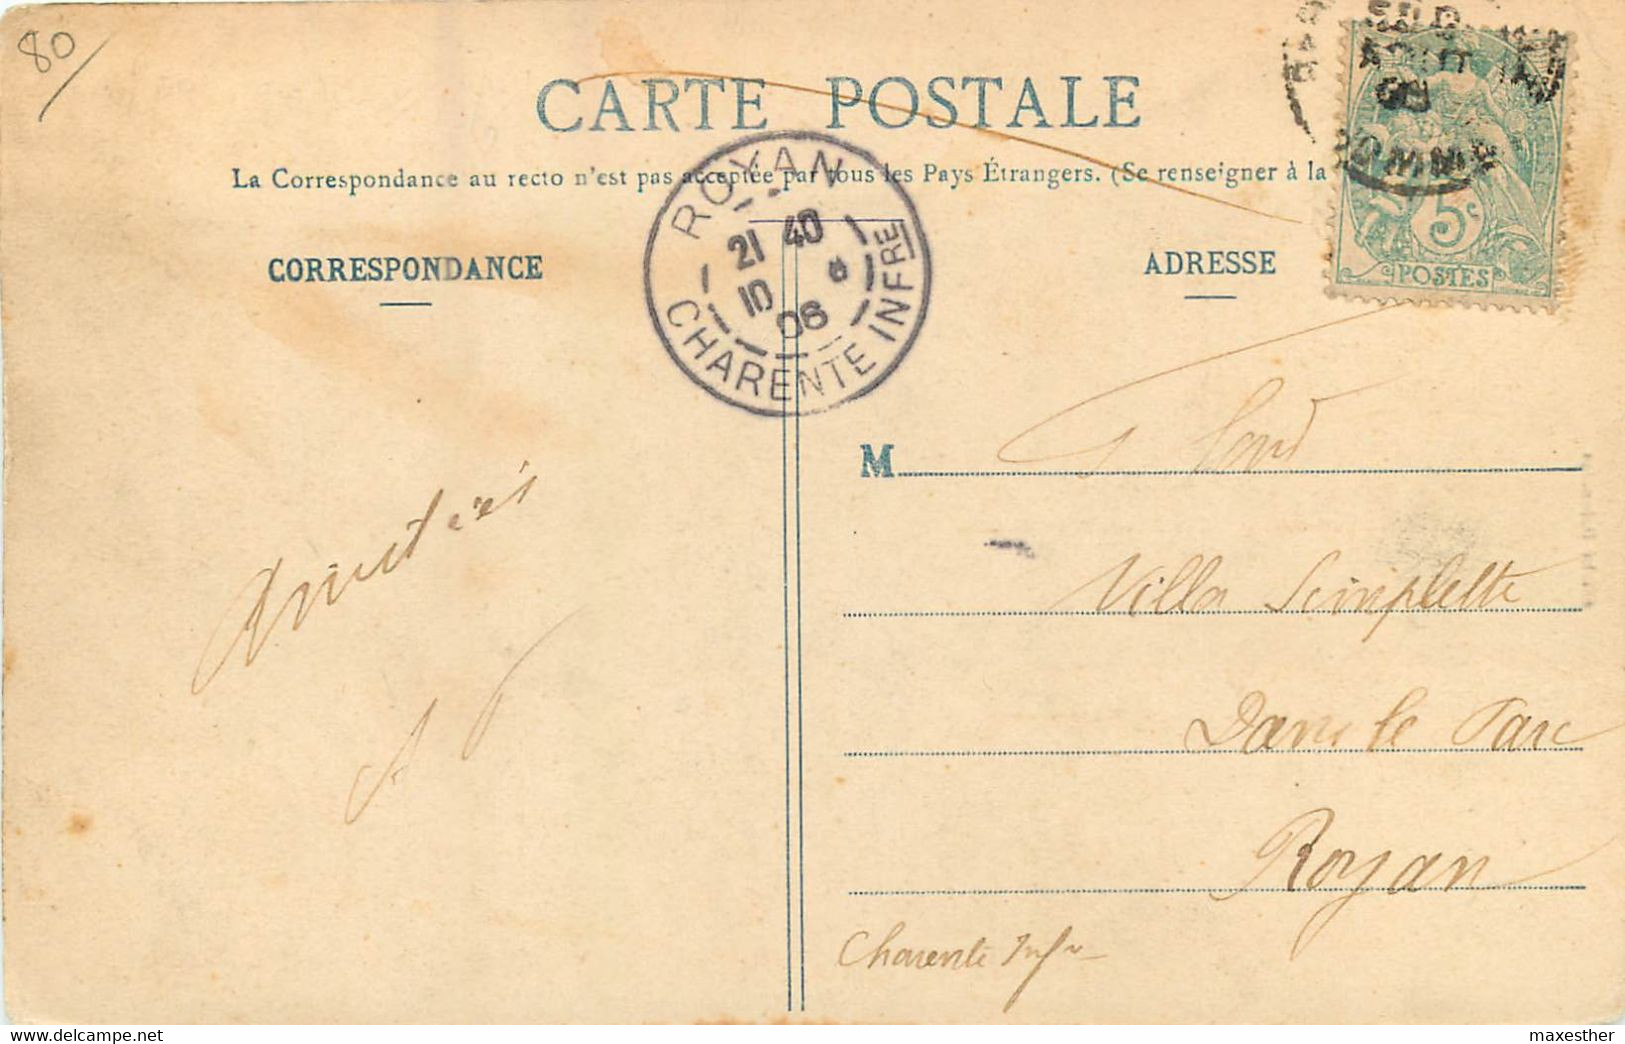 80
CARTE POSTALE
La Correspondance au recto n'est pas acceptée par tous les Pays Étrangers. (Se renseigner à la
CORRESPONDANCE
ADRESSE
ROYAN
21 40
10 8
06
CHARENTE INFRE
SOMME
5c
POSTES
M
Villa Simplette
Dans le Parc
Royan
Charente Infre
Amitiés
maxesther